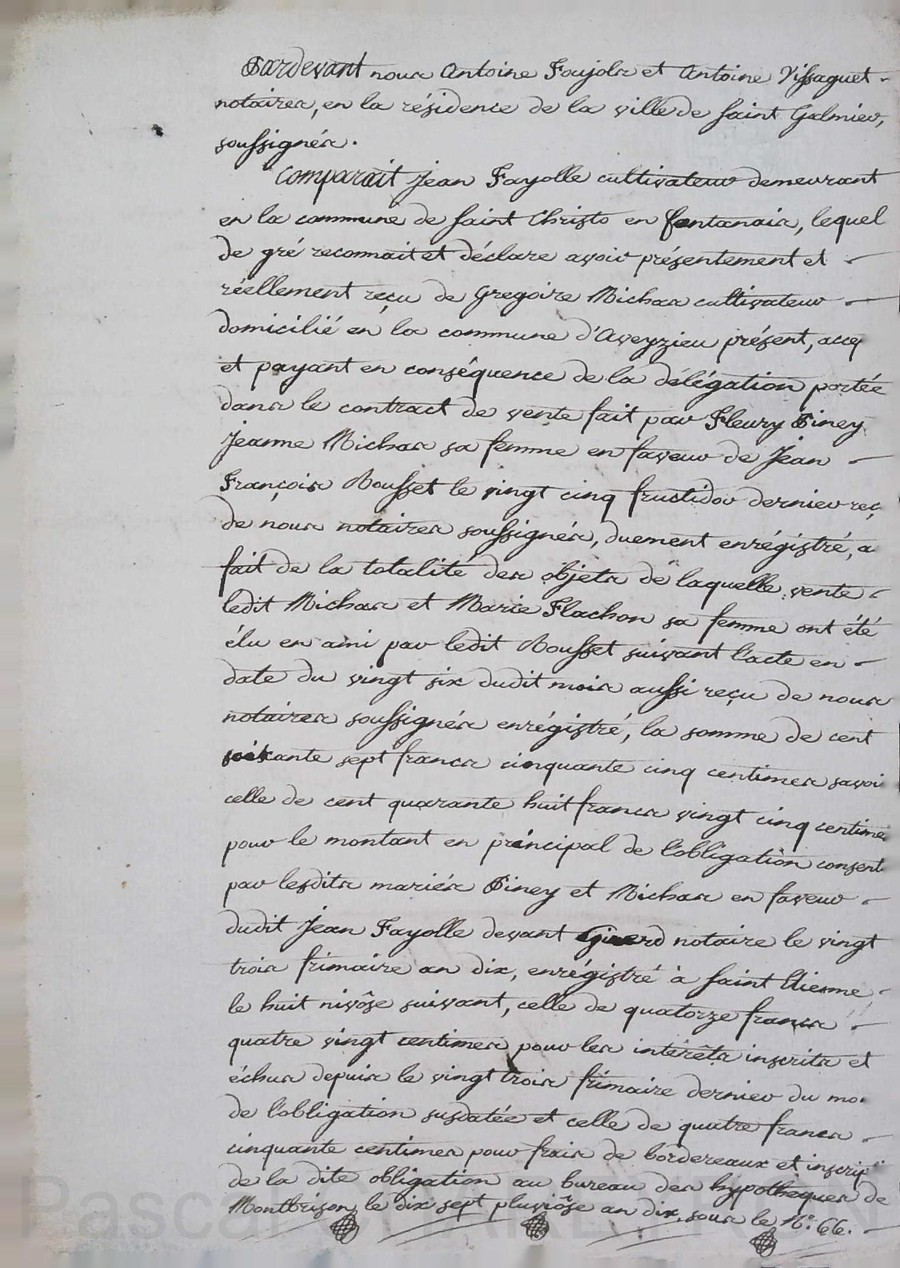 Pardevant nous Antoine Foujols et Antoine Vissaguet
notaires, en la résidence de la ville de saint Galmier,
soussignés.
Comparait Jean Fayolle cultivateur demeurant
en la commune de saint Christo en fontanais, lequel
de gré reconnait et déclare avoir présentement et
réellement reçu de Gregoire Michas cultivateur
domicilié en la commune d'Aveyzieu présent, accep
et payant en conséquence de la délégation portée
dans le contract de vente fait par Fleury Piney
Jeanne Michas sa femme en faveur de Jean
François Bousset le vingt cinq fructidor dernier reç
de nous notaires soussignés, duement enrégistré, a
fait de la totalité des objets de laquelle vente
ledit Michas et Marie Flachon sa femme ont été
élu en ami par ledit Bousset suivant l'acte en
date du vingt six dudit mois aussi reçu de nous
notaires soussignés enrégistré, la somme de cent
soixante sept francs cinquante cinq centimes savoir
celle de cent quarante huit francs vingt cinq centimes
pour le montant en principal de l'obligation consent
par lesdits mariés Piney et Michas en faveur
dudit Jean Fayolle devant notaire le vingt
trois frimaire an dix, enrégistré à saint Etienne
le huit nivôse suivant, celle de quatorze francs
quatre vingt centimes pour les intérêts inscrits et
échus depuis le vingt trois frimaire dernier du mo
de l'obligation susdatée et celle de quatre francs
cinquante centimes pour frais de bordereaux et inscrip.on
de la dite obligation au bureau des hypothèques de
Montbrison le dix sept pluviôse an dix, sous le N.o 66.